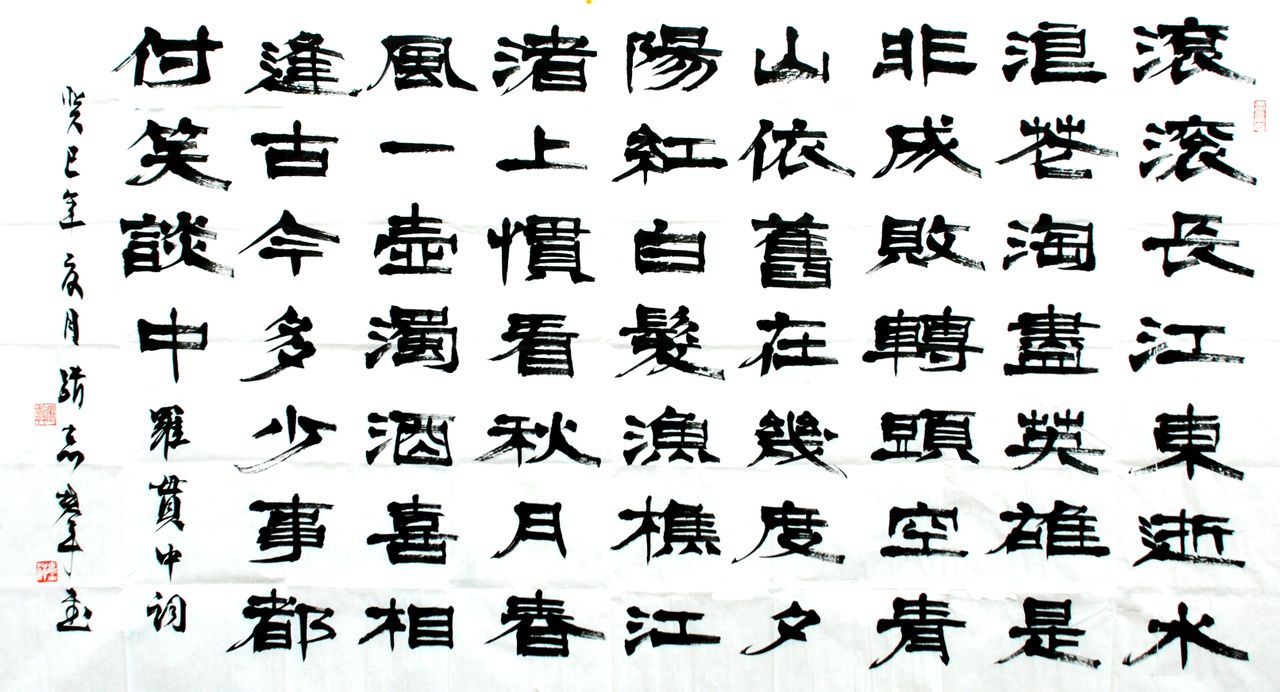 滾滾長江東逝水
浪花淘盡英雄是
非成敗轉頭空青
山依舊在幾度夕
陽紅白髮漁樵江
渚上慣看秋月春
風一壺濁酒喜相
逢古今多少事都
付笑談中 羅貫中詞
癸巳年夏月